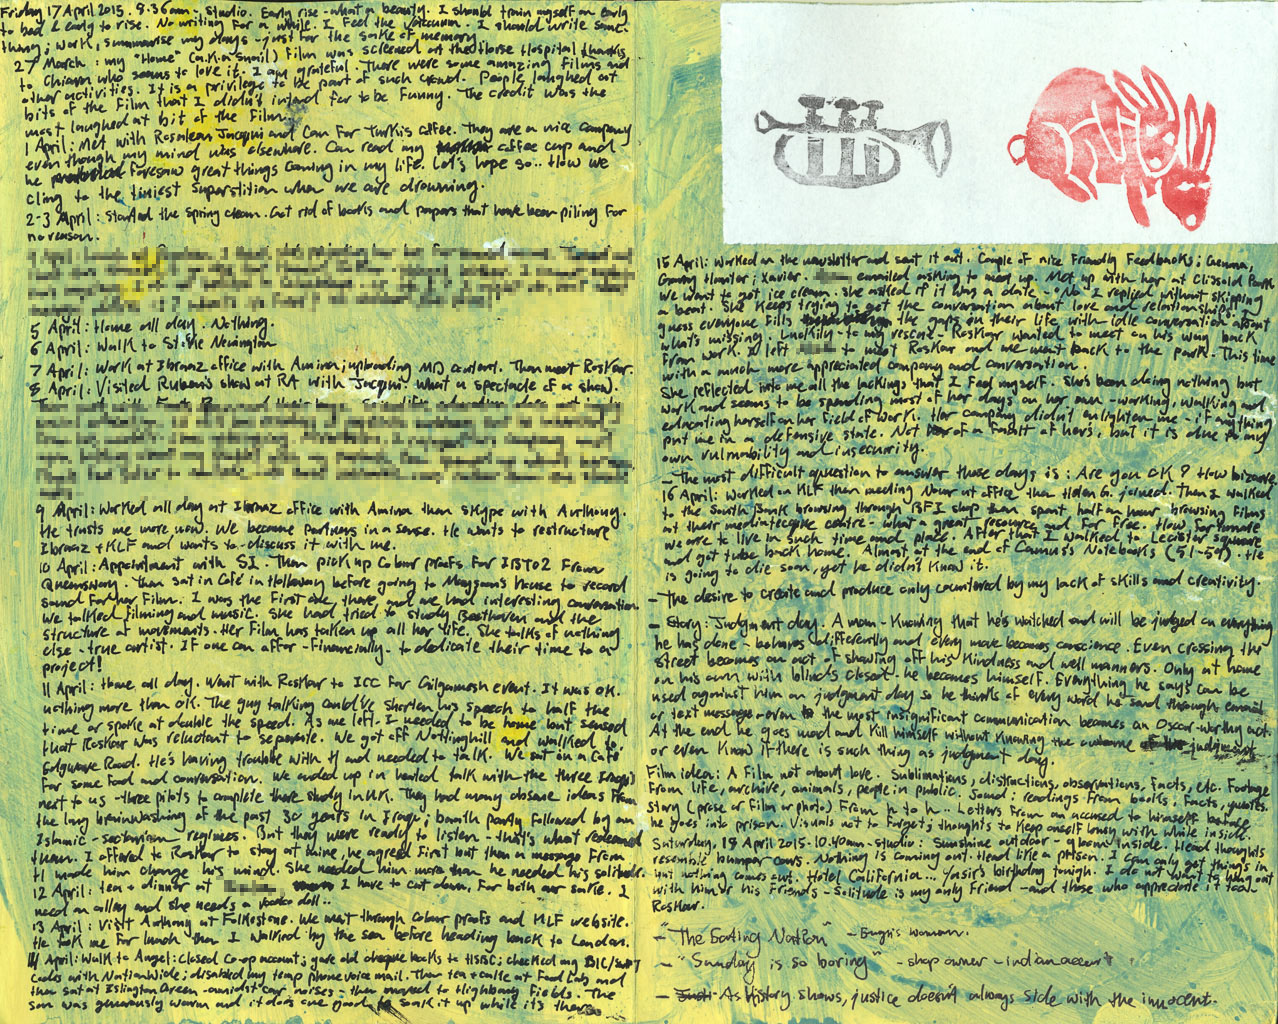 Friday 17 April 2015. 8.36am - studio. Early rise - what a beauty. I should train myself on early
to bed & early to rise. No writing for a while. I feel the vacuum. I should write some-
thing; work, summarise my days - just for the sake of memory.
27 March: my "Home" (a.k.a Snail) film was screened at the Horse Hospital thanks
to Chiara who seems to love it. I am grateful. There were some amazing films and
other activities. It is a privilege to be part of such crowd. People laughed at
bits of the film that I didn't intend for to be funny. The credit was the
most laughed at bit of the film.
1 April: Met with Rosaleen Jacquni and Can for Turkis coffee. They are a nice company
even though my mind was elsewhere. Can read my coffee cup and
he foresaw great things coming in my life. Let's hope so.. How we
cling to the tiniest superstition when we are drowning.
2-3 April: Started the spring clean. Got rid of books and papers that have been piling for
no reason.
5 April: Home all day. Nothing.
6 April: Walk to Stoke Newington
7 April: Work at Ibraaz office with Amina; uploading content. Then meet Roskar.
8 April: Visited Rubens show at RA with Jacqui. What a spectacle of a show.
9 April: Worked all day at Ibraaz office with Amina then Skype with Anthony.
He trusts me more now. We become partners in a sense. He wants to restructure
Ibraaz + KLF and wants to discuss it with me.
10 April: Appointment with SI. Then pick up Colour proofs for IBT02 from
Queensway. Then sat in Café in Holloway before going to Maysam's house to record
sound for her film. I was the first one there, and we had interesting conversation
We talked filming and music. She had tried to study Beethoven and the
structure of movements. Her film has taken up all her life. She talks of nothing
else - true artist. If one can offer - financially - to dedicate their time to a
project!
11 April: Home all day. Went with Roskar to ICC for Gilgamesh event. It was OK.
nothing more than OK. The guy talking could've shorten his speech to half the
time or spoke at double the speed. As we left. I needed to be home but sensed
that Roskar was reluctant to separate. We got off Nottinghill and walked to
Edgware Road. He's having trouble with H and needed to talk. We sat on a café
for some food and conversation. We ended up in heated talk with the three Iraqis
next to us - three pilots to complete there study in UK. They had many obscene ideas from
the long brainwashing of the past 30 years in Iraq; baath party followed by an
Islamic - sectarian - regimes. But they were ready to listen - that's what redeemed
them. I offered to Roskar to stay at mine, he agreed first but then a message from
H made him change his mind. She needed him more than he needed his solitude.
12 April: tea + dinner at I have to cut down. For both our sake. I
need an alley and she needs a voodo doll..
13 April: Visit Anthony at Folkestone. We went through colour proofs and KLF website.
He took me for lunch then I walked by the sea before heading back to London.
14 April: Walk to Angel: closed Co-op account; gave old cheque books to HSBC; checked my BIC/SWIFT
codes with Nationwide; disabled my temp phone voice mail. Then tea + cake at Food Lab and
then sat at Islington Green - amidst car noises - then moved to Highbury Fields. The
sun was generously warm and it does one good to soak it up while it's there.
15 April: Worked on the newsletter and sent it out. Couple of nice friendly feedbacks; Gemma,
Hunter; Xavier. emailed asking to meet up. Met up with her at Clissold Park
We want to get ice cream. She asked if it was a date. - "No" I replied without skipping
a beat. She keeps trying to get the conversation about love and relationships. I
guess everyone fills the gaps on their life with idle conversation about
what's missing. Luckily to my rescue. Roskar wanted to meet on his way back
from work. I left to meet Roskar and we went back to the park. This time
with a much more appreciated company and conversation.
She reflected into me all the lackings that I feel myself. She's been doing nothing but
work and seems to be spending most of her days on her own - working, walking and
educating herself on her field of work. Her company didn't enlighten me - if anything
put me in a defensive state. Not of a fault of hers, but it is due to my
own vulnrability and insecurity.
- The most difficult question to answer those days is: Are you OK? How bizarre
16 April: Worked on KLF then meeting Nour at office then Helen G. joined. Then I walked
to the South Bank browsing through BFI shop then spent half an hour browsing films
at their mediateque centre - what a great resource and for free. How fortunate
we are to live in such time and place. After that I walked to Leicester Square
and got tube back home. Almost at the end of Camus's Notebooks (51-59). He
is going to die soon, yet he didn't know it.
- The desire to create and produce only countered by my lack of skills and creativity.
- Story: Judgment day. A man - knowing that he's watched and will be judged on everything
he has done - behaves differently and every move becomes conscience. Even crossing the
street becomes an act of showing off his kindness and well manners. Only at home
on his own with blinds closed - he becomes himself. Everything he says can be
used against him on judgment day so he thinks of every word he send through email
or text message - even to the most insignificant communication becomes an Oscar-worthy act.
At the end he goes mad and kill himself without knowing the outcome judgment
or even know if there is such thing as judgment day.
Film idea: A film not about love. Sublimations, distructions, observations, facts, etc. Footage
from life, archive, animals, people in public. Sound: readings from books, facts, quotes.
Story (prose or film or photo) From h to h.. Letters from an accused to himself before
he goes into prison. Visuals not to forget; thoughts to keep oneself busy with while inside.
Saturday, 18 April 2015 - 10.40am - studio: Sunshine outdoor - gloom inside. Head thoughts
resemble bumper cars. Nothing is coming out. Head like a prison. I can only get things in
but nothing comes out. Hotel California... Yasir's birthday tonight. I do not want to hang out
with him or his friends - Solitude is my only friend - and those who appreciate it too -
Roskar.
- "The Eating Nation" - Englis woman.
- "Sunday is so boring" - shop owner - indian accent
- As History shows, justice doesn't always side with the innocent.